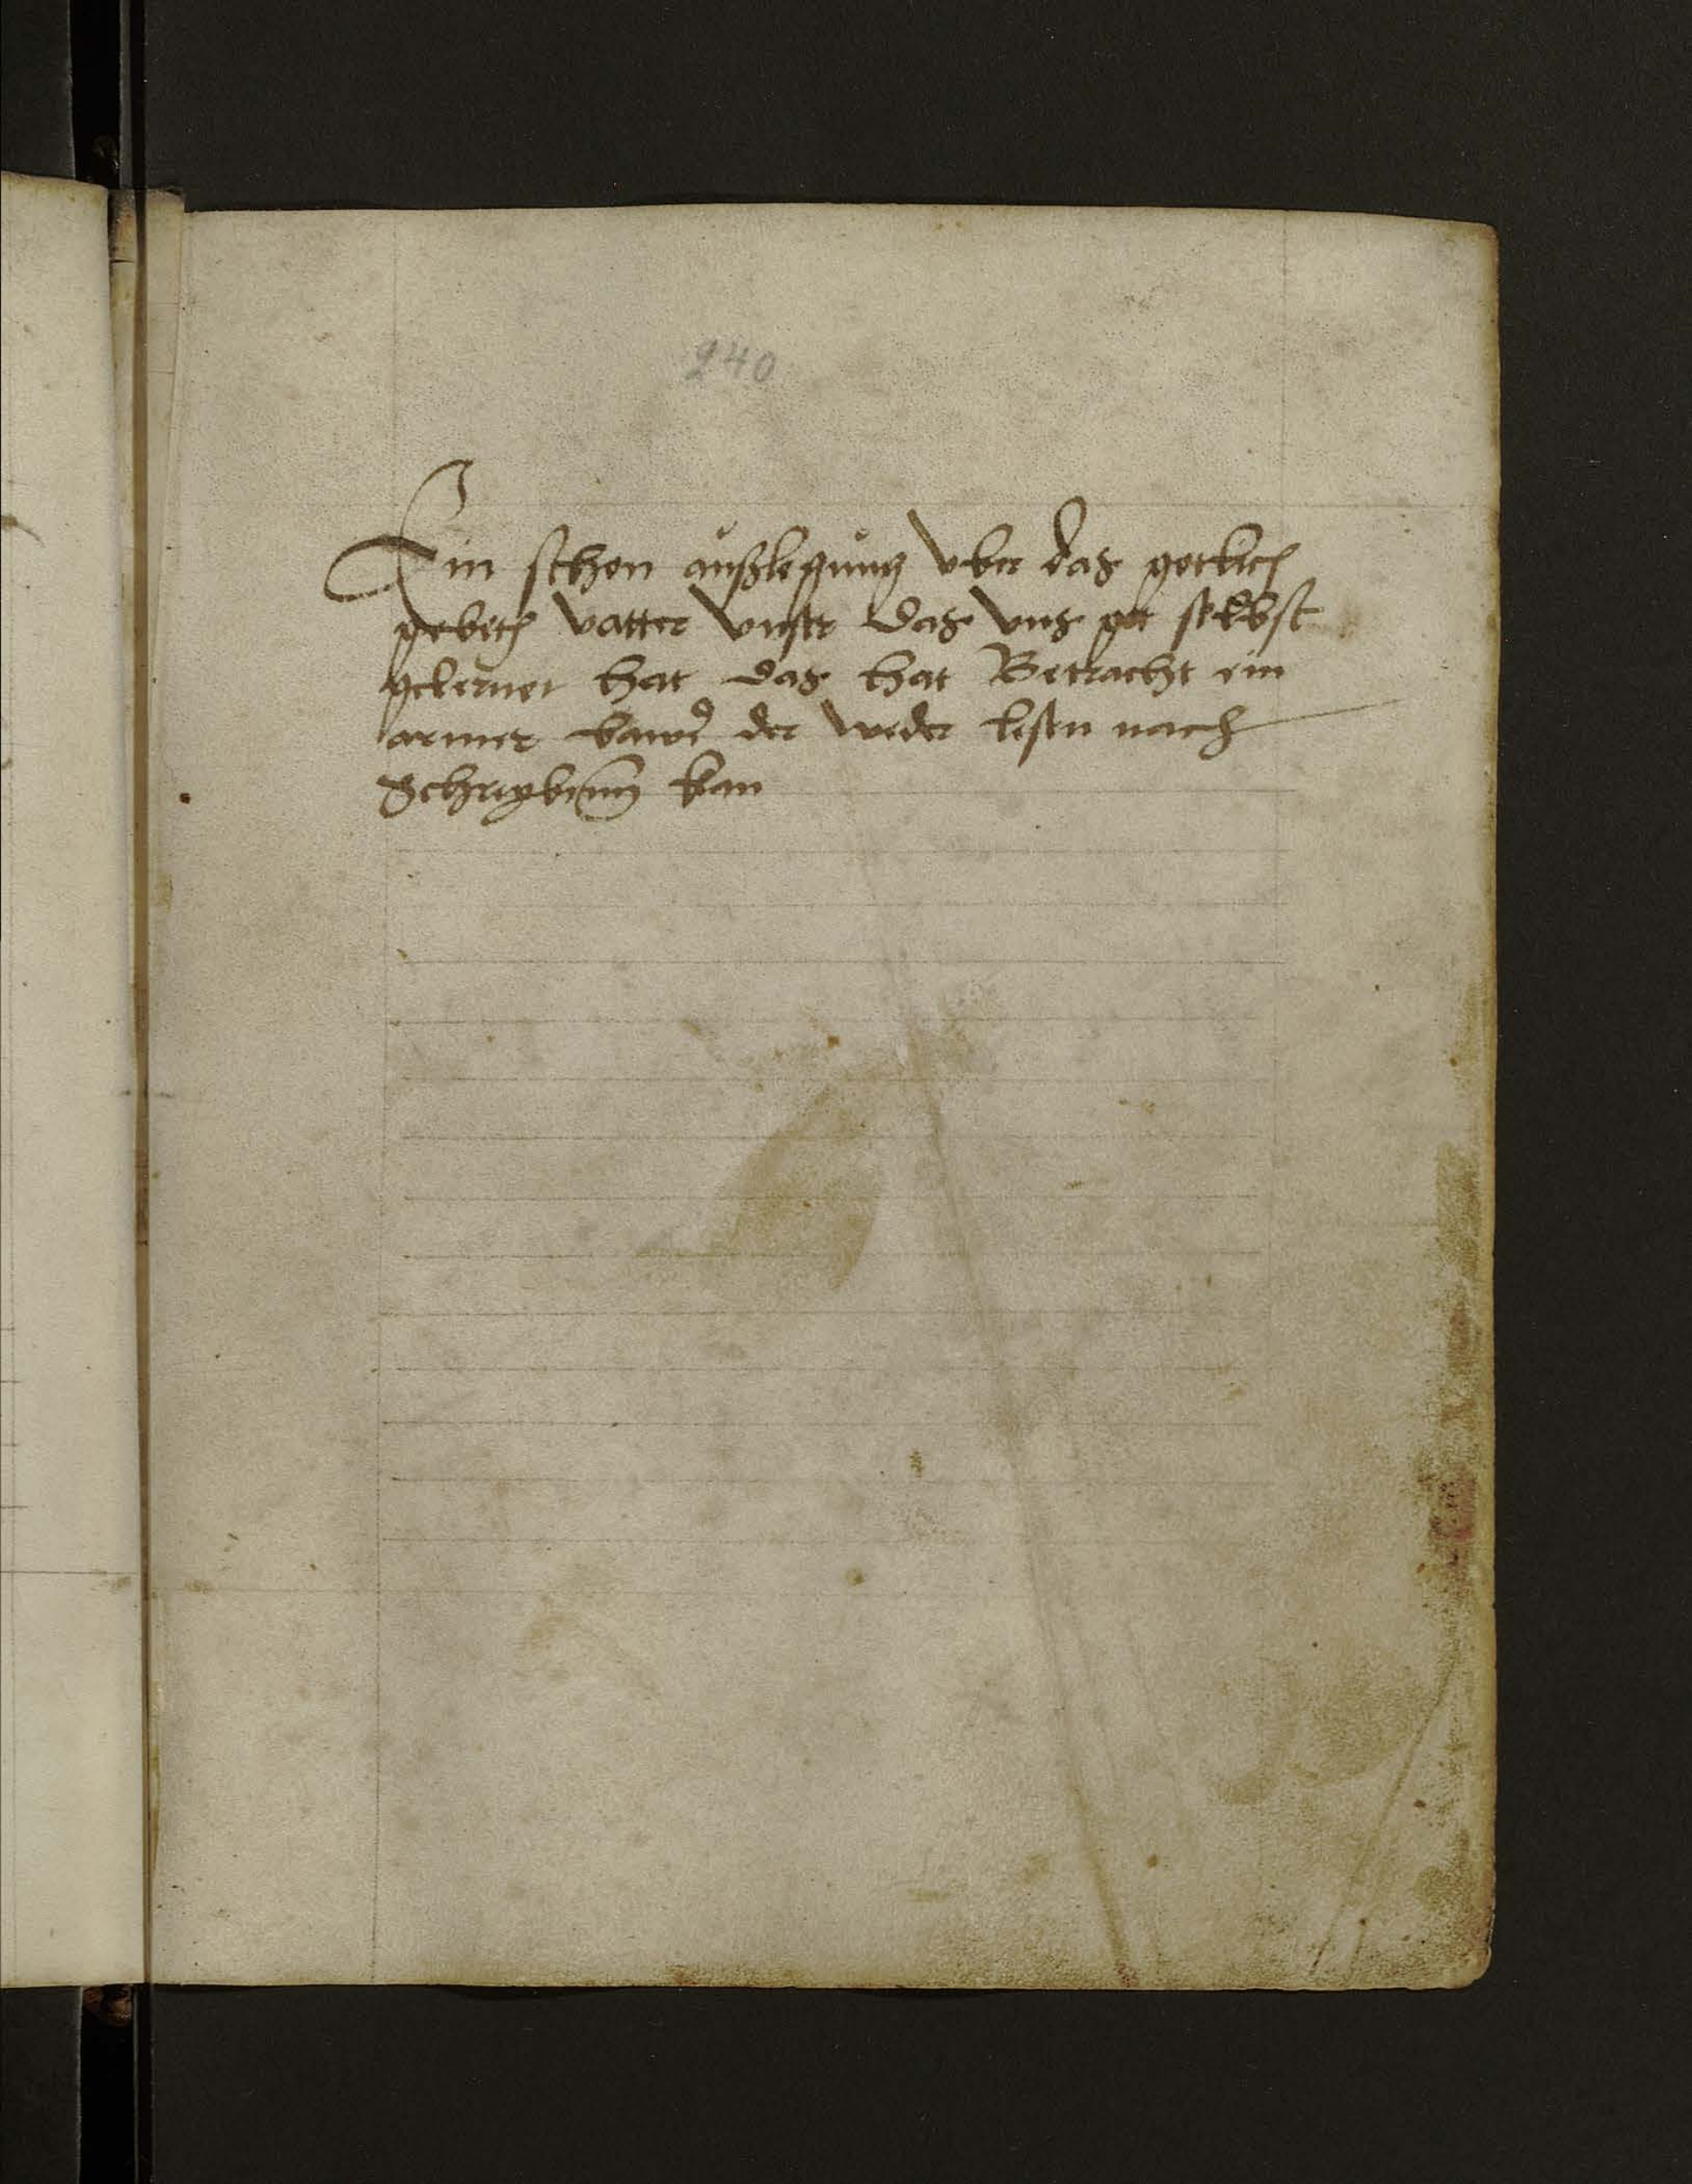 240
Ein schon außlegung vber das gotlich
gebeth vatter vnser das vns got selbst
gelernet hat das hat Betracht ein
armer bawr der weder lesen nach
Schreyben kan